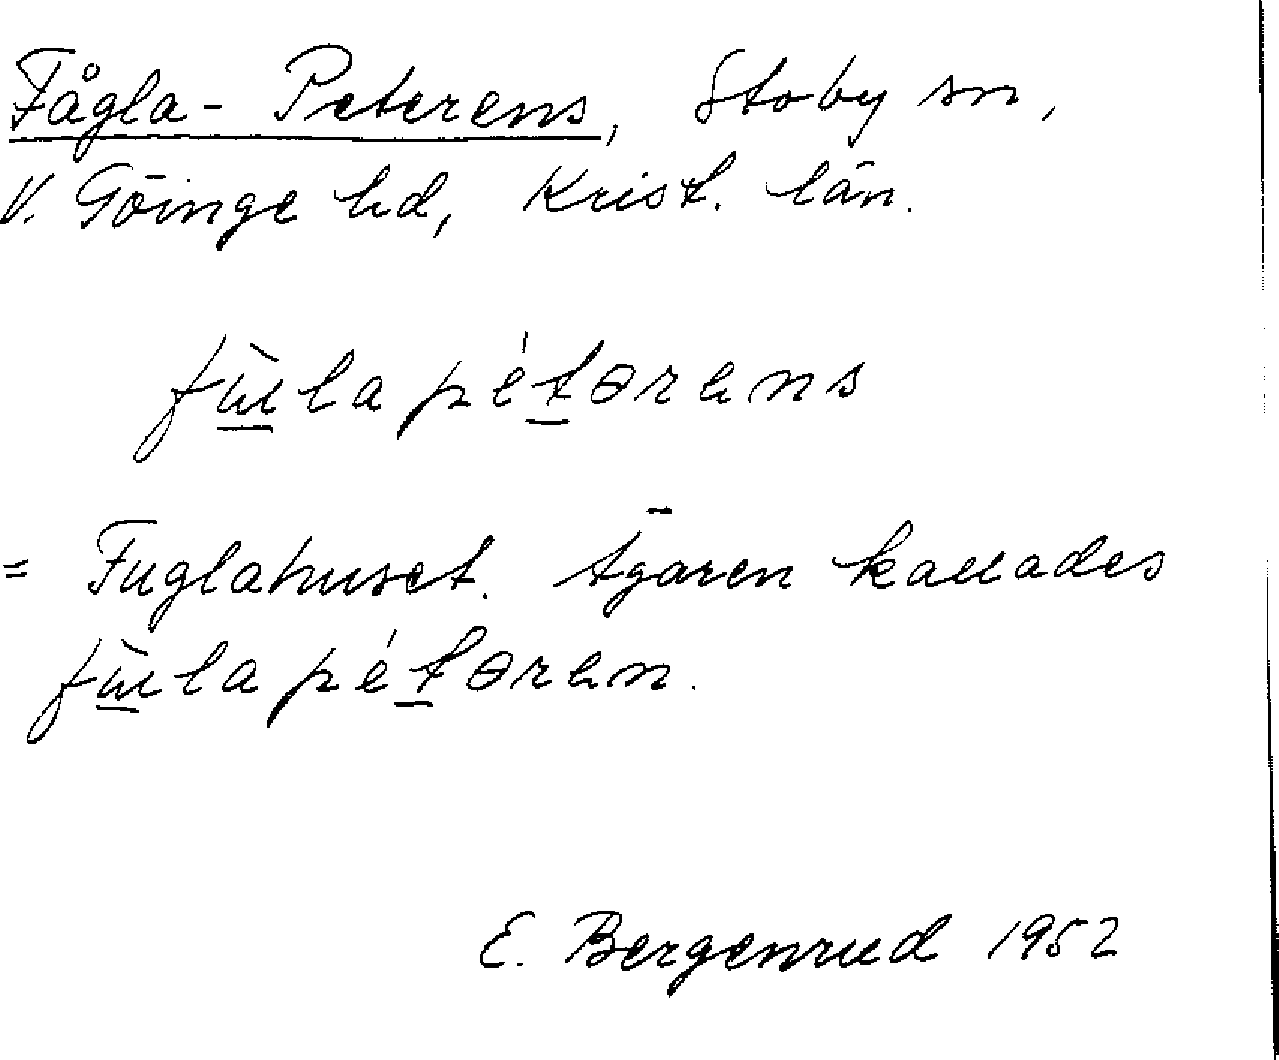 Fågla-Peterens, Stoby sn,
V. Göinge hd, Krist. län.
fùlapétərens
= Fuglahuset. Ägaren kallades
fùlapétəren.
E. Bergenrud 1952